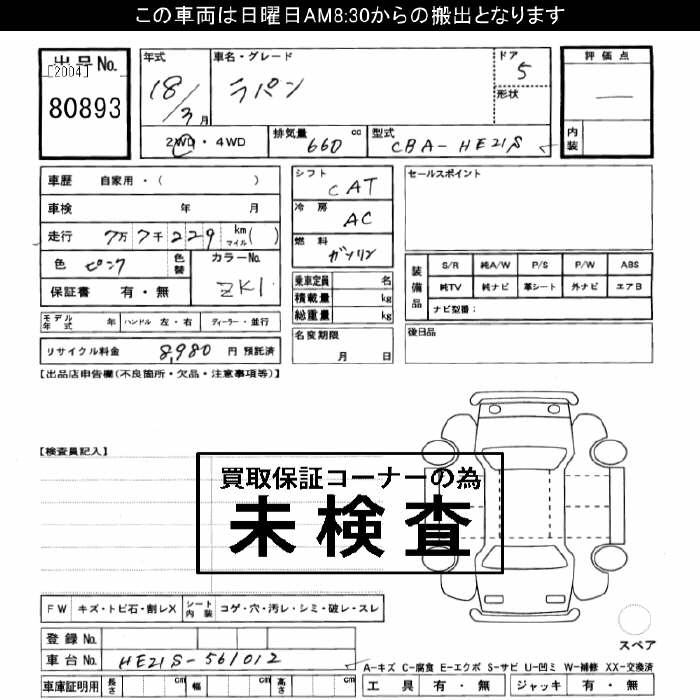 この車両は日曜日AM8:30からの搬出となります
出品No.
[2004]
80893
年式
18/3月
車名・グレード
ラパン
ドア
5
形状
評価点
—
内装
2WD・4WD
排気量
660 cc
型式
CBA-HE21S
車歴 自家用・( )
車検 年 月
走行 7万7千229 km マイル( )
色 ピンク 色替
カラーNo.
ZK1
保証書 有・無
シフト
CAT
冷房
AC
燃料
ガソリン
乗車定員 名
積載量 kg
総重量 kg
名変期限
月 日
セールスポイント
装備品
S/R 純A/W P/S P/W ABS
純TV 純ナビ 革シート 外ナビ エアB
ナビ型番:
後日品
モデル年式 年 ハンドル 左・右 ディーラー・並行
リサイクル料金 8,980 円 預託済
【出品店申告欄(不良箇所・欠品・注意事項等)】
【検査員記入】
買取保証コーナーの為
未検査
FW キズ・トビ石・割レX シート内装 コゲ・穴・汚レ・シミ・破レ・スレ
登録No.
車台No. HE21S-561012
車庫証明用 長さ cm 幅 cm 高さ cm
スペア
A-キズ C-腐食 E-エクボ S-サビ U-凹ミ W-補修 XX-交換済
工具 有・無 ジャッキ 有・無